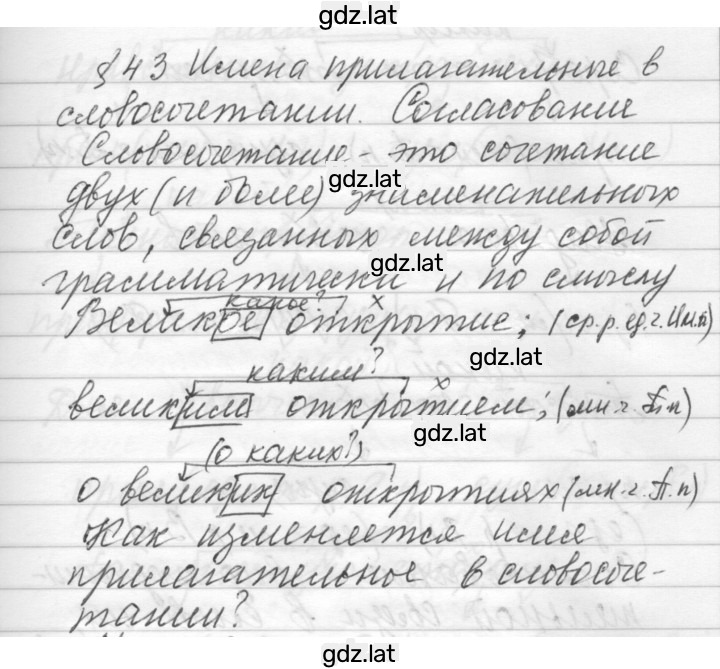 gdz.lat
§ 43 Имена прилагательные в
словосочетании. Согласование
Словосочетание - это сочетание
gdz.lat
двух (и более) знаменательных
слов, связанных между собой
gdz.lat
грамматически и по смыслу
какое? х
Великое открытие; (ср.р. ед.ч. Им.п)
gdz.lat
каким? х
великим открытием; (мн.ч. П.п)
gdz.lat
(о каких?)
о великих открытиях (мн.ч. П.п)
Как изменяется имя
прилагательное в словосоче-
тании?
gdz.lat